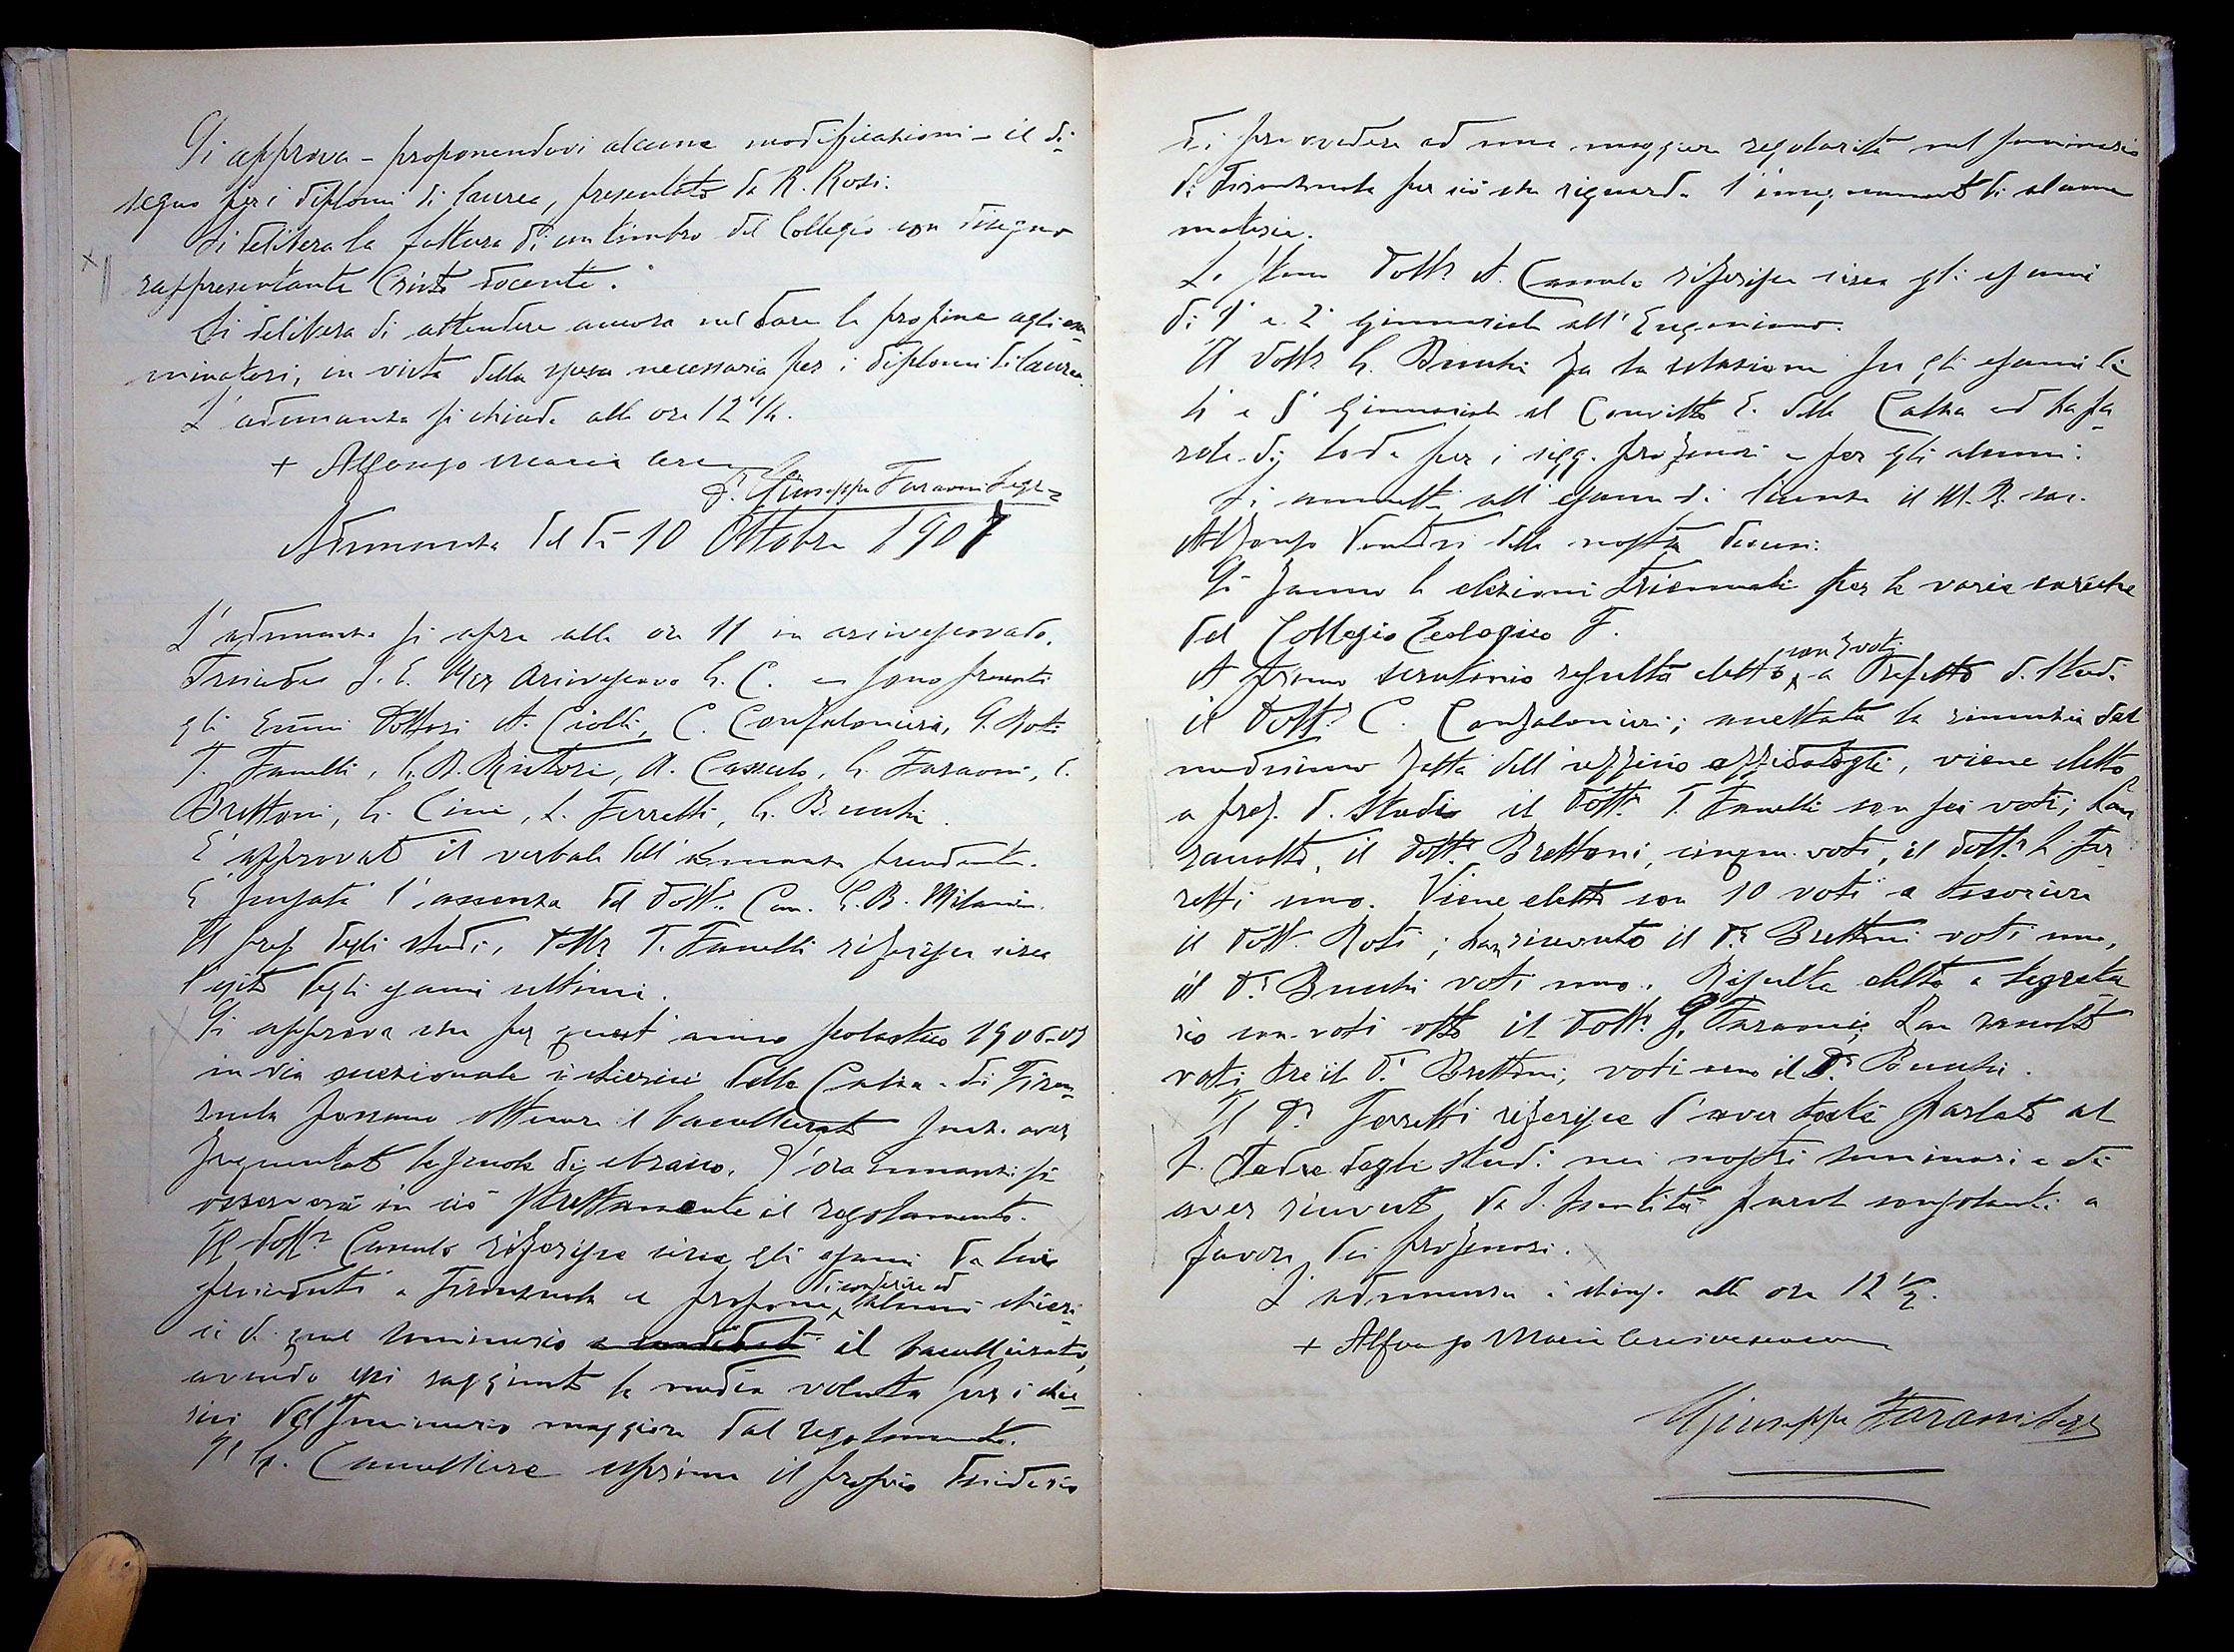 Si approva - proponendovi alcune modificazioni - il di-
segno per i diplomi di laurea, presentato da R. Rosi.
Si delibera la fattura di un timbro del Collegio con disegno
rappresentante Cristo docente.
Si delibera di attendere ancora nel dare le propine agli esa-
minatori, in vista della spesa necessaria per i diplomi di laurea.
L'adunanza si chiude alle ore 12 1/2.
+ Alfonso Maria Arciv
S. Giuseppe Faraoni Segr.
Adunanza del dì - 10 Ottobre 1907
L'adunanza si apre alle ore 11 in arcivescovado.
Presiede S. E. Mgr Arcivescovo G. C. e sono presenti
gli Emi Dottori A. Ciolli, C. Confalonieri, G. Roti
T. Fanelli, G. B. Ristori, A. Cassulo, G. Faraoni, E.
Brettoni, G. Cini, L. Ferretti, G. Bunchi.
E' approvato il verbale dell'adunanza precedente.
E' scusata l'assenza del Dott. Can. G. B. Milanesi.
Il pref. degli studi, Dottr T. Fanelli riferisce circa
l'esito degli esami ultimi.
Si approva che per quest'anno scolastico 1906-07
in via eccezionale i chierici della Calza e di Firen-
zuola possano ottenere il baccellierato senza aver
frequentato la scuola di ebraico. D'ora innanzi si
osserverà in ciò strettamente il regolamento.
Il Dottr Cassulo riferisce circa gli esami da lui
presieduti a Firenzuola e propone di conferire ad alcuni chieri-
ci di quel seminario il baccellierato,
avendo essi raggiunto la media voluta per i chie-
rici del Seminario maggiore dal regolamento.
Il G. Cancelliere esprime il proprio desiderio
di provvedere ad una maggiore regolarità nel seminario
di Firenzuola per ciò che riguarda l'insegnamento di alcune
materie.
Lo stesso Dottr A. Cassulo riferisce circa gli esami
di 1ª e 2ª Ginnasiale all'Eugeniano.
Il Dottr G. Bunchi fa la relazione su gli esami di
4ª e 5ª Ginnasiale al Convitto E. della Calza ed ha pa-
role di lode per i sigg. professori e per gli alunni.
Si ammette all'esame di licenza il M. R. sac.
Alfonso della nostra diocesi.
Si fanno le elezioni triennali per le varie cariche
del Collegio Teologico F.
A primo scrutinio resulta eletto con voti a Prefetto d. Studi
il Dottr C. Confalonieri; accettata la rinunzia del
medesimo fatta dell'uffizio affidatogli, viene eletto
a pref. d. Studi il Dottr T. Fanelli con sei voti; han
raccolto, il Dottr Brettoni, cinque voti, il Dottr L. Fer-
retti uno. Viene eletto con 10 voti a tesoriere
il Dott. Roti; han ricevuto il Dr Brettoni voti uno,
il Dr Bunchi voti uno. Risulta eletto a segreta-
rio con voti otto il Dottr G. Faraoni; han raccolto
voti tre il Dr Brettoni, voti uno il Dr Bunchi.
Il Dr Ferretti riferisce d'aver parlato al
S. Padre degli studi nei nostri seminari e di
aver ricevuto da S. Santità parole consolanti a
favore dei professori.
L'adunanza è chiusa alle ore 12 1/2.
+ Alfonso Maria Arcivescovo
Giuseppe Faraoni Segr